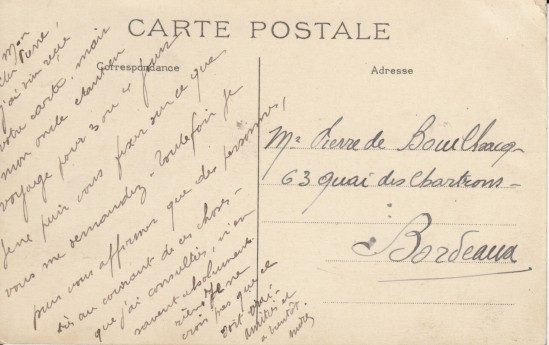 CARTE POSTALE
Correspondance
Adresse
Mon
cher Pierre,
j'ai bien reçu
votre carte, mais
mon oncle étant en
voyage pour 3 ou 4 jours
je ne puis vous fixer sur ce que
vous me demandez. Toutefois je
puis vous affirmer que des personnes,
très au courant de ces choses -
que j'ai consultés, n'en
savent absolument
rien. Je ne
crois pas que ce
soit vrai.
amitiés et
à bientôt
Mr Pierre de
63 Quai des Chartrons -
Bordeaux